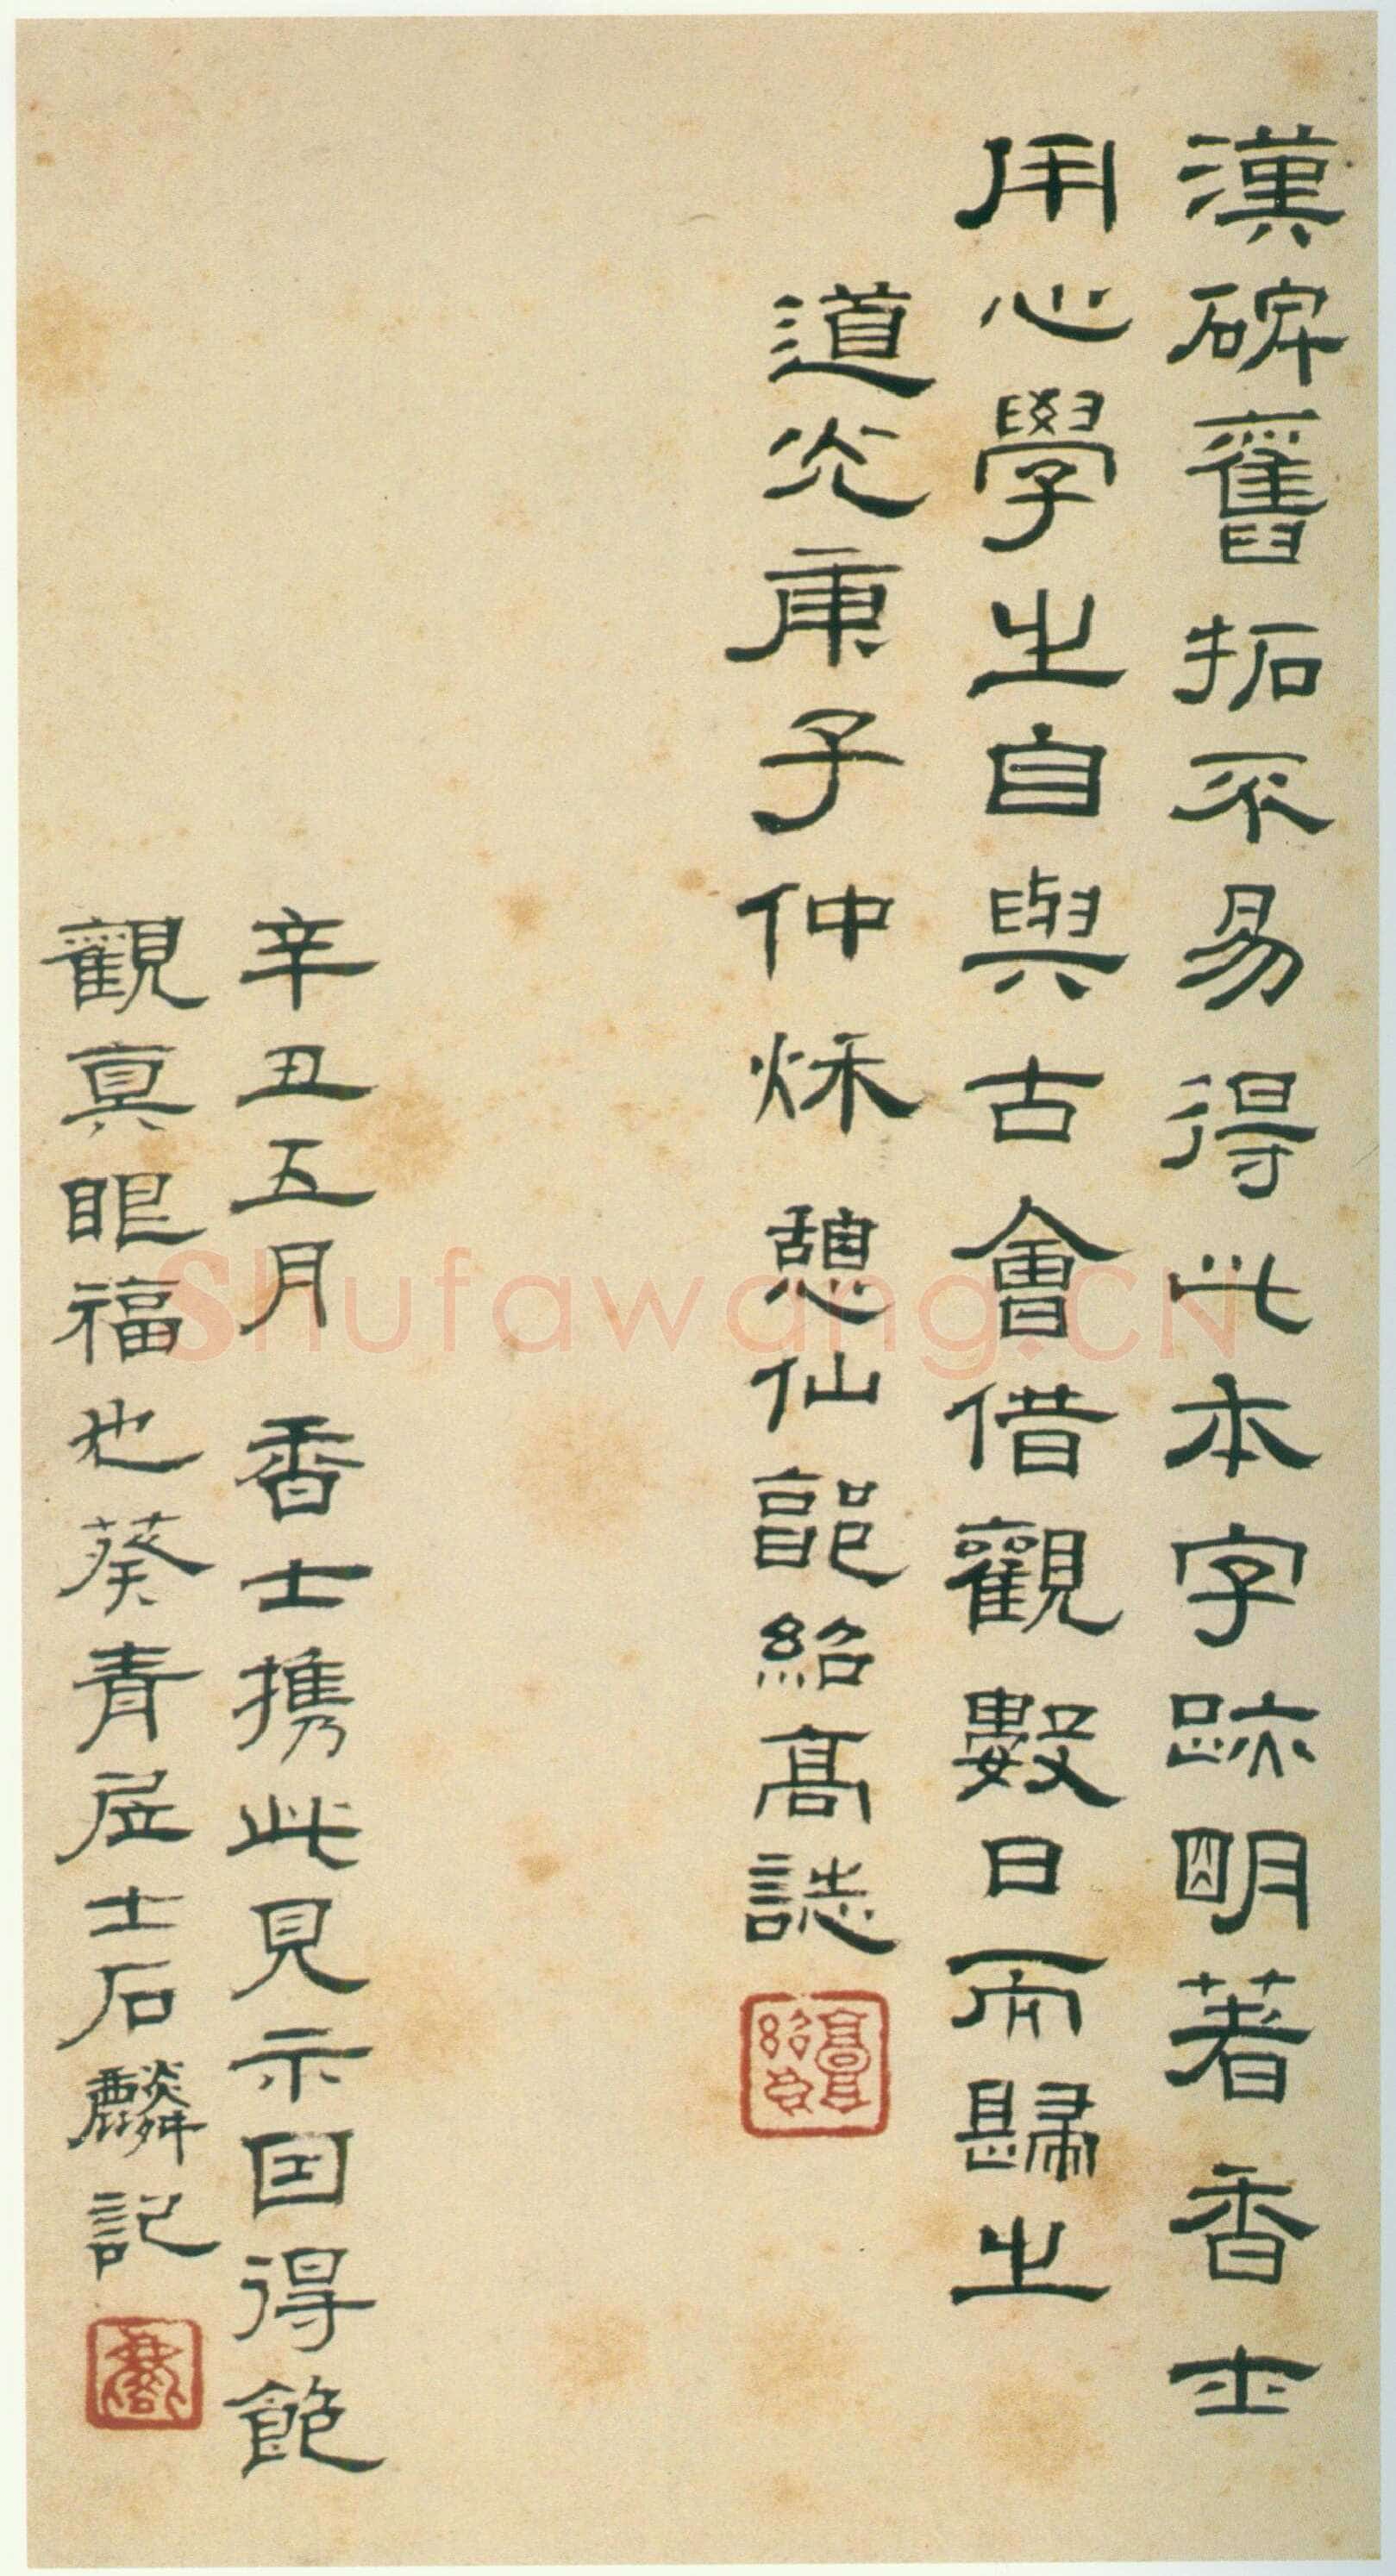 漢碑舊拓不易得此本字跡明著香士
用心學之自與古會借觀數日而歸之
道光庚子仲秌憩仙郭紹高誌
辛丑五月 香士携此見示因得飽
觀真眼福也葵青居士石麟記
Shufawang.CN